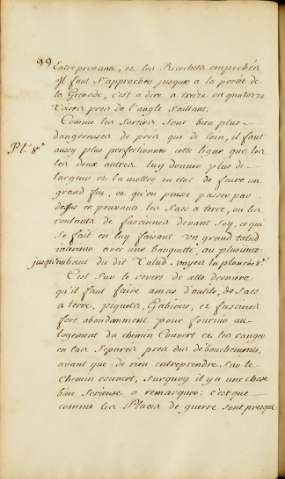 99
Entreprenante, et les Ricochets empechés
il faut s'approcher jusque a la portée de
la Grenade, c'est a dire a treize ou quatorze
Toises pres de l'angle Saillant.
Comme les Sorties sont bien plus
dangereuses de pres que de loin, il faut
Pl. 8e
aussy plus perfectionner cette ligne que les
les deux autres, luy donner plus de
largeur et la mettre en etat de faire un
grand feu, et qu'on puisse passer par
dessus en poussant les Sacs a terre, ou les
roulants de fascines devant soy, ce qui
se fait en luy faisant un grand talud
interieur avec une banquette, ou plusieurs
jusqu'au haut du dit Talud, voyez la planche 8e.
C'est sur le revers de cette derniere
qu'il faut faire amas d'outils, de Sacs
a terre, piquets, Gabions, et fascines
fort abondamment pour fournir au
logement du chemin Couvert et les ranger
en tas Separés pres des debouchements,
avant que de rien entreprendre sur le
Chemin couvert, surquoy il y a une chose
bien serieuse a remarquer; c'est que
comme les Places de guerre sont presque